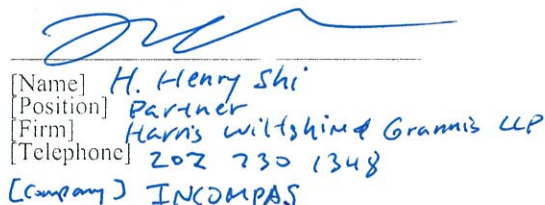 [Name] H. Henry Shi
[Position] Partner
[Firm] Harris Wiltshire & Grannis LLP
[Telephone] 202 730 1348
[Company] INCOMPAS